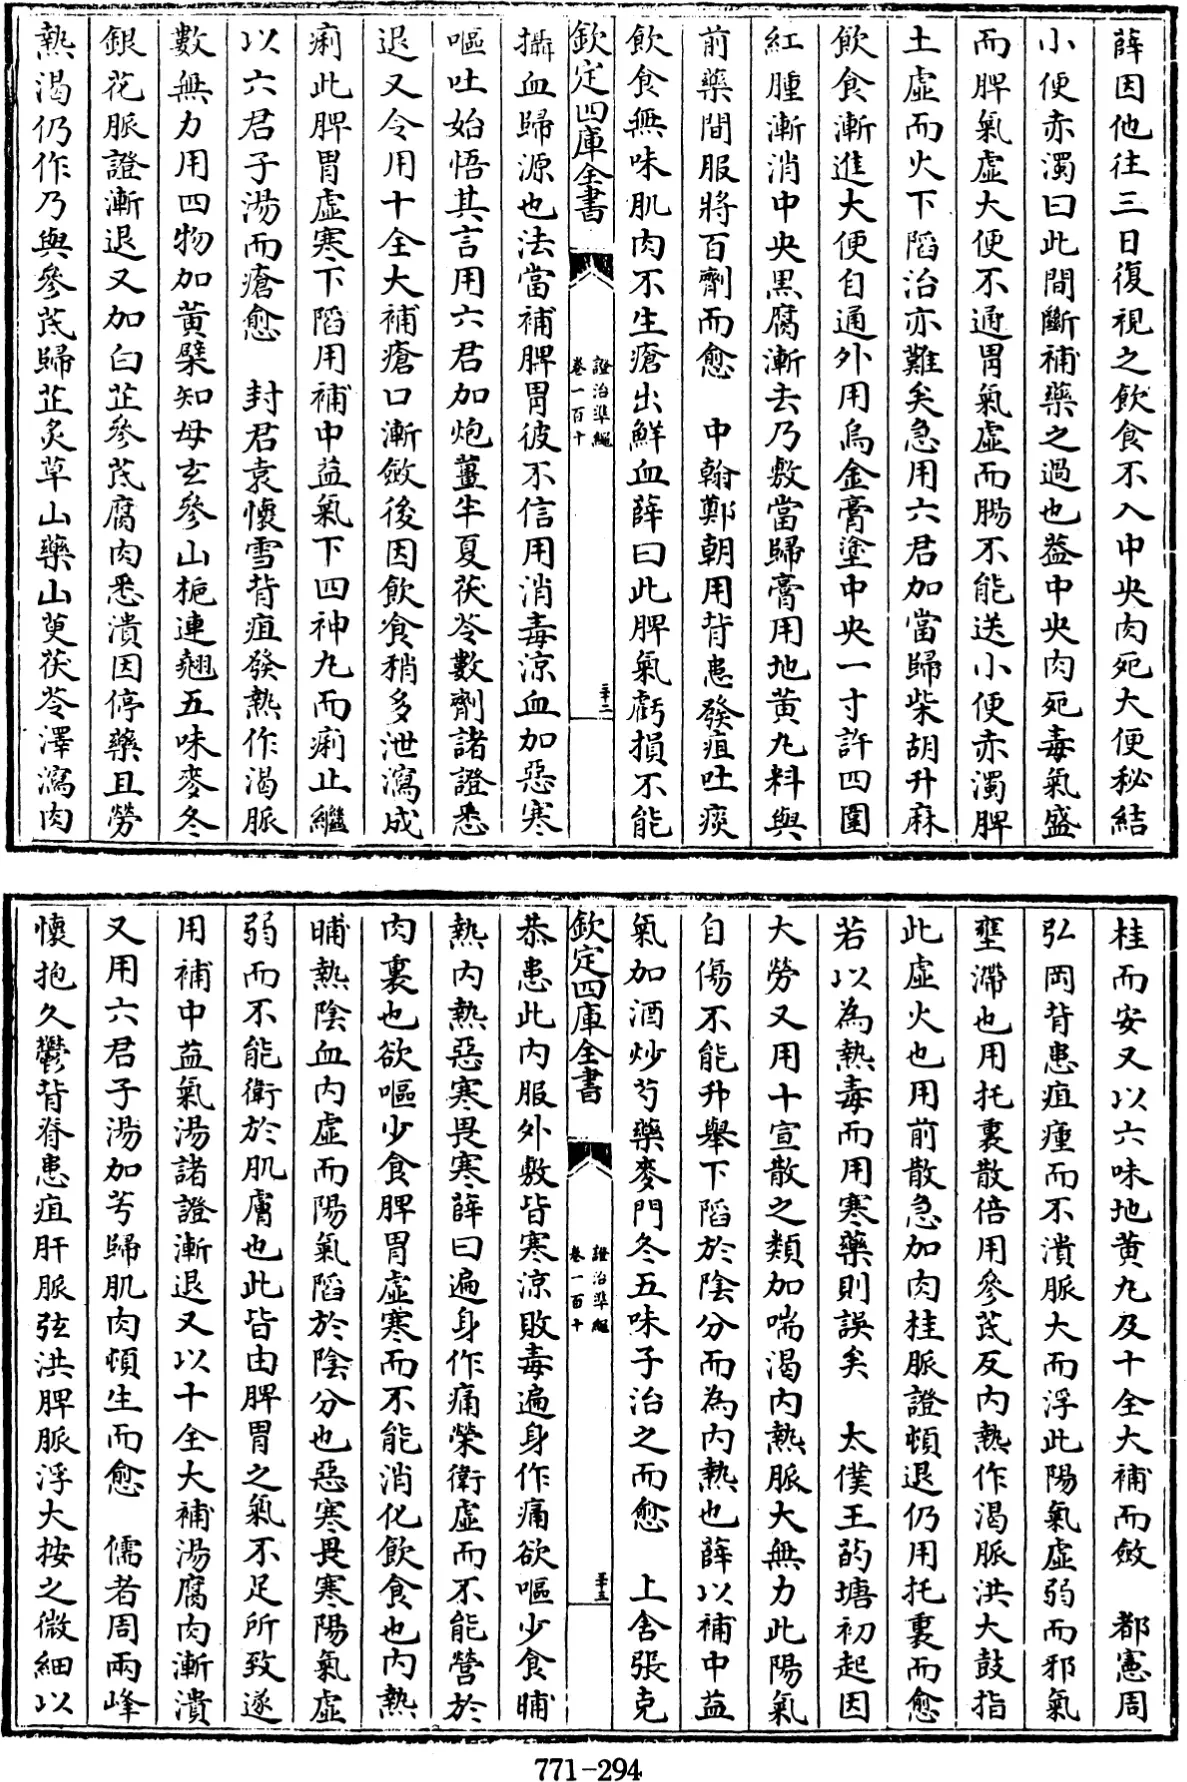 薛因他往三日復視之飲食不入中央肉死大便秘結
小便赤濁曰此間斷補藥之過也蓋中央肉死毒氣盛
而脾氣虛大便不通胃氣虛而腸不能送小便赤濁脾
土虛而火下陷治亦難矣急用六君加當歸柴胡升麻
飲食漸進大便自通外用烏金膏塗中央一寸許四圍
紅腫漸消中央黑腐漸去乃敷當歸膏用地黄丸料與
前藥間服將百劑而愈　中翰鄭朝用背患發疽吐痰
飲食無味肌肉不生瘡出鮮血薛曰此脾氣虧損不能
欽定四庫全書
證治準繩
卷一百十
三十二
攝血歸源也法當補脾胃彼不信用消毒涼血加惡寒
嘔吐始悟其言用六君加炮薑半夏茯苓數劑諸證悉
退又令用十全大補瘡口漸斂後因飲食稍多泄瀉成
痢此脾胃虛寒下陷用補中益氣下四神丸而痢止繼
以六君子湯而瘡愈　封君袁懷雪背疽發熱作渴脈
數無力用四物加黄蘗知母玄參山梔連翹五味麥冬
銀花脈證漸退又加白芷參芪腐肉悉潰因停藥且勞
熱渴仍作乃與參芪歸芷炙草山藥山萸茯苓澤瀉肉
桂而安又以六味地黄丸及十全大補而斂　都憲周
弘岡背患疽瘇而不潰脈大而浮此陽氣虛弱而邪氣
壅滯也用托裏散倍用參芪反內熱作渴脈洪大鼓指
此虛火也用前散急加肉桂脈證頓退仍用托裏而愈
若以為熱毒而用寒藥則誤矣　太僕王葯塘初起因
大勞又用十宣散之類加喘渴內熱脈大無力此陽氣
自傷不能升舉下陷於陰分而為內熱也薛以補中益
氣加酒炒芍藥麥門冬五味子治之而愈　上舍張克
欽定四庫全書
證治準繩
卷一百十
三十三
恭患此內服外敷皆寒涼敗毒遍身作痛欲嘔少食晡
熱內熱惡寒畏寒薛曰遍身作痛榮衛虛而不能營於
肉裏也欲嘔少食脾胃虛寒而不能消化飲食也內熱
晡熱陰血內虛而陽氣陷於陰分也惡寒畏寒陽氣虛
弱而不能衛於肌膚也此皆由脾胃之氣不足所致遂
用補中益氣湯諸證漸退又以十全大補湯腐肉漸潰
又用六君子湯加芎歸肌肉頓生而愈　儒者周兩峰
懷抱久鬱背脊患疽肝脈弦洪脾脈浮大按之微細以
771-294